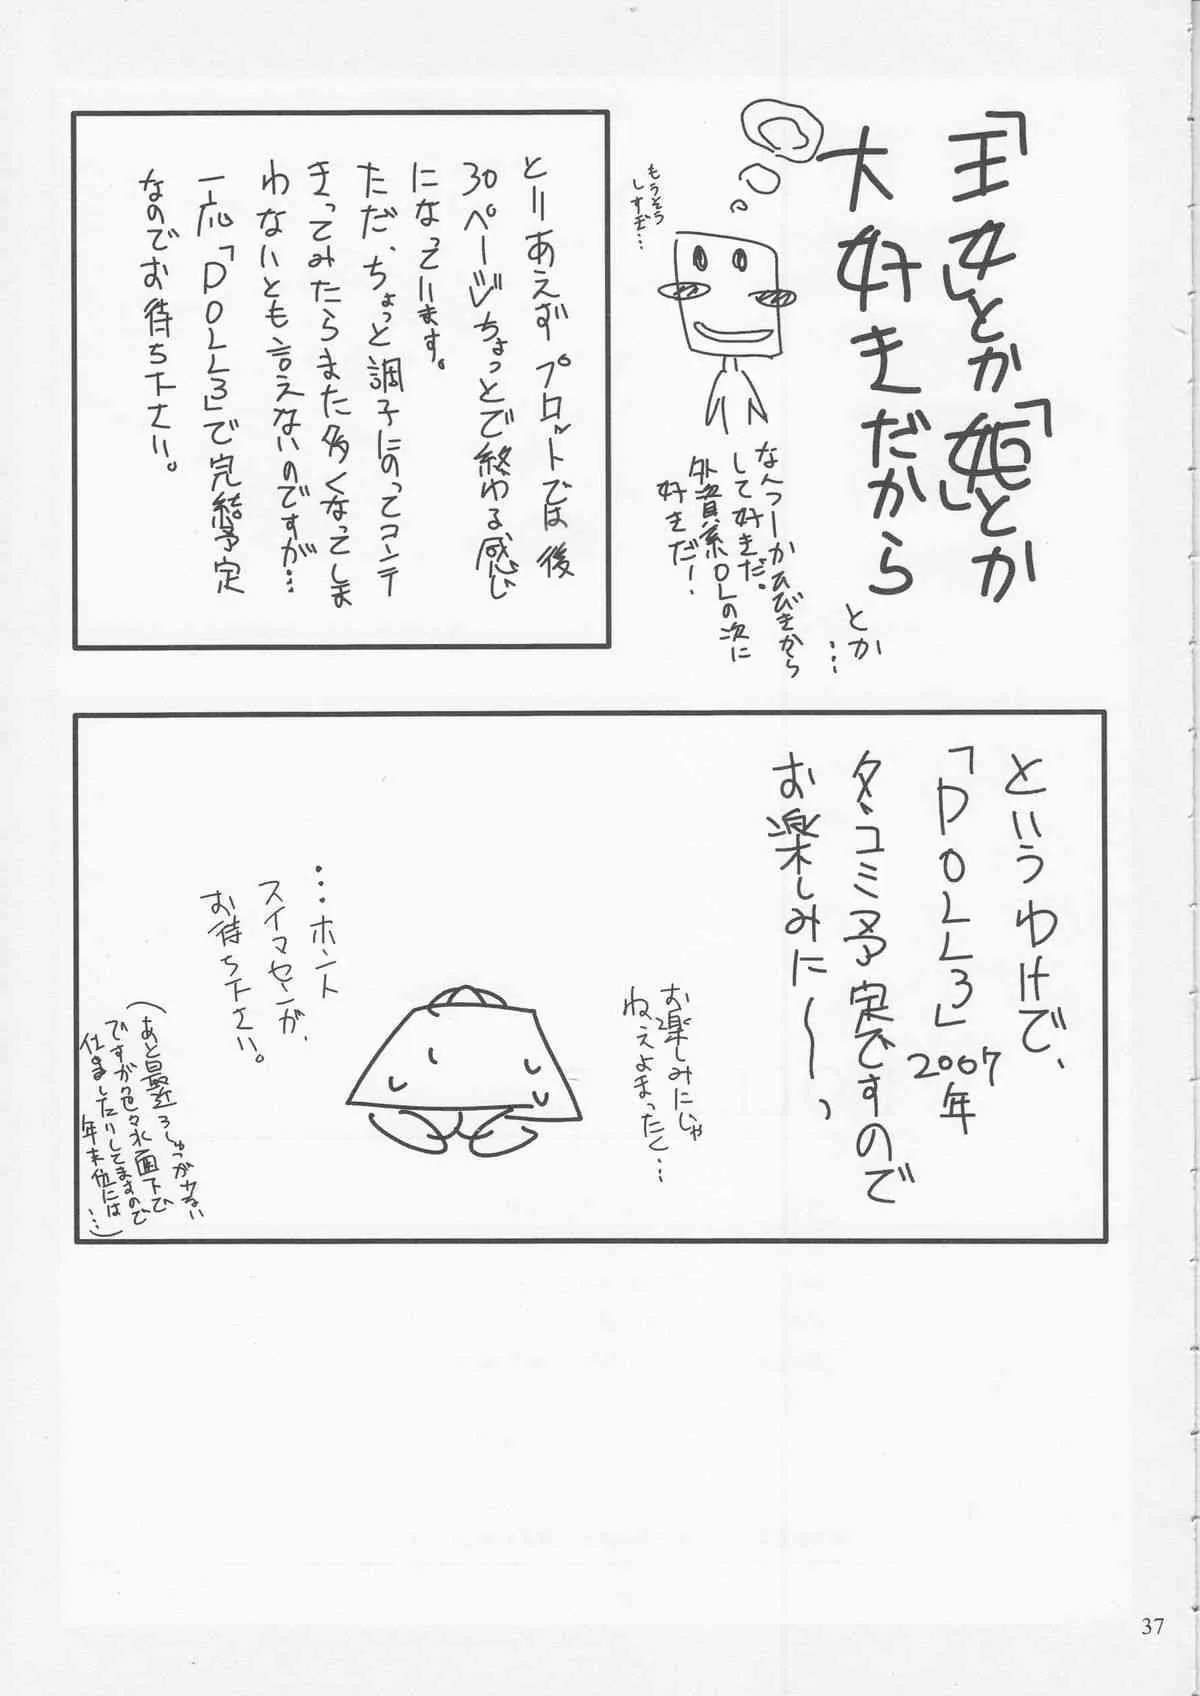 「王女」とか「姫」とか
大好きだから
とか
…
もうそう
しすぎ…
なんつーかひびきから
して好きだ。
外資系OLの次に
好きだ!
とりあえずプロットでは後
30ページちょっとで終わる感じ
になっています。
ただ、ちょっと調子にのってコンテ
きってみたらまた多くなってしま
わないとも言えないのですが…
一応「DOLL3」で完結予定
なのでお待ち下さい。
というわけで、
「DOLL3」2007年
夏コミ予定ですので
お楽しみに〜〜っ
お楽しみにじゃ
ねえよまったく…
…ホント
スイマセンが、
お待ち下さい。
(あと最近ろしゅつが少ない
ですが色々水面下で
仕こましたりしてますので
年末位には
…)
37